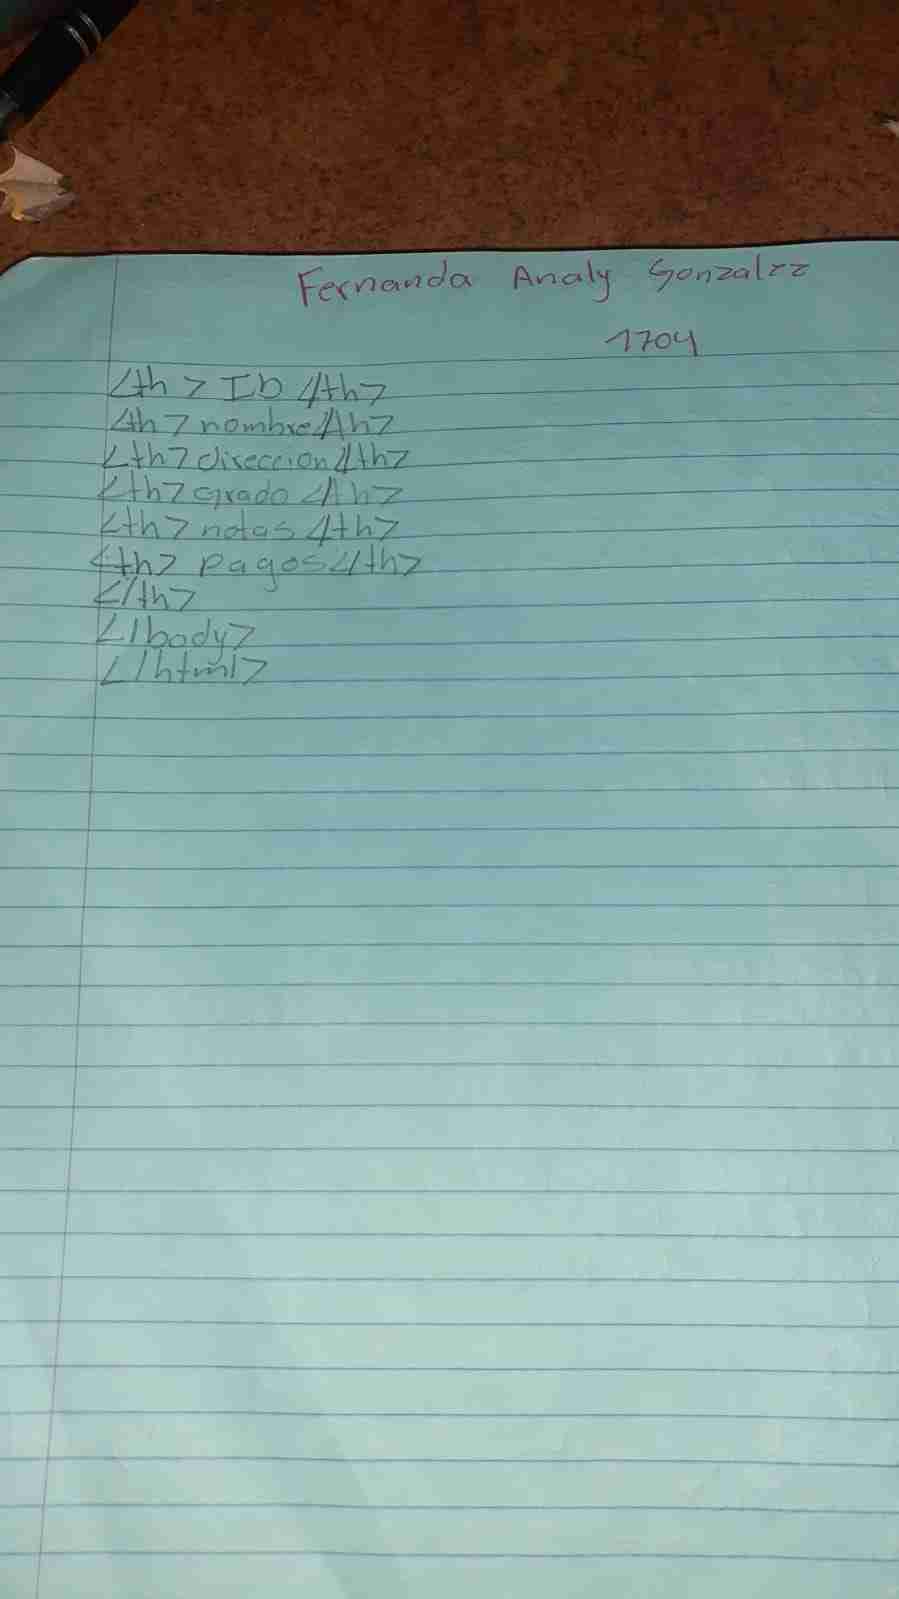 Fernanda Analy Gonzalez
1704
<th> ID </th>
<th> nombre</th>
<th> direccion</th>
<th> grado </th>
<th> notas </th>
<th> pagos </th>
</th>
</body>
</html>